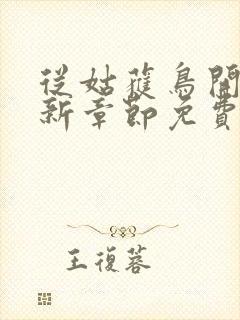 從姑蒦鳥開
新章節免費
王復蓉